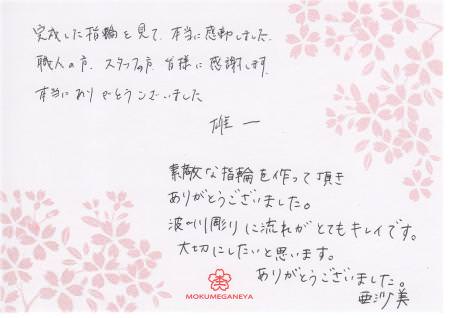 完成した指輪を見て、本当に感動しました。
職人の方、スタッフの方、皆様に感謝します。
本当にありがとうございました
雄一
素敵な指輪を作って頂き
ありがとうございました。
波の彫りに流れがとてもキレイです。
大切にしたいと思います。
ありがとうございました。
亜沙美
MOKUMEGANEYA